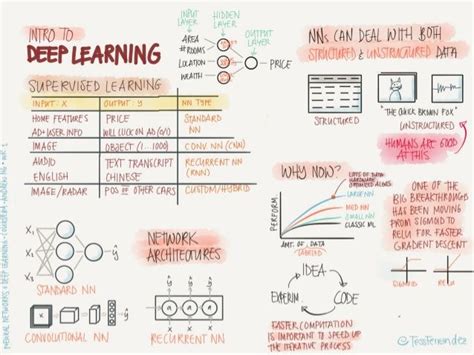 INTRO TO
DEEP LEARNING
SUPERVISED LEARNING
INPUT: X OUTPUT: y NN TYPE
HOME FEATURES PRICE STANDARD NN
AD+USER INFO WILL CLICK ON AD (0/1)
IMAGE OBJECT (1...1000) CONV NN (CNN)
AUDIO TEXT TRANSCRIPT RECURRENT NN (RNN)
ENGLISH CHINESE
IMAGE/RADAR POS OF OTHER CARS CUSTOM/HYBRID
INPUT LAYER
HIDDEN LAYER
OUTPUT LAYER
AREA
#ROOMS
LOCATION
WEALTH
PRICE
NNs CAN DEAL WITH BOTH
STRUCTURED & UNSTRUCTURED DATA
STRUCTURED
"THE QUICK BROWN FOX"
UNSTRUCTURED
HUMANS ARE GOOD
AT THIS
NETWORK
ARCHITECTURES
X1
X2
X3
ŷ
STANDARD NN
CONVOLUTIONAL NN
RECURRENT NN
WHY NOW?
PERFORM.
LARGE NN
MED NN
SMALL NN
CLASSIC ML
AMT. OF DATA
LABELED
IDEA
EXPERIM.
CODE
FASTER COMPUTATION
IS IMPORTANT TO SPEED UP
THE ITERATIVE PROCESS
ONE OF THE
BIG BREAKTHROUGHS
HAS BEEN MOVING
FROM SIGMOID TO
RELU FOR FASTER
GRADIENT DESCENT
SIGMOID
RELU
@TessFerrandez